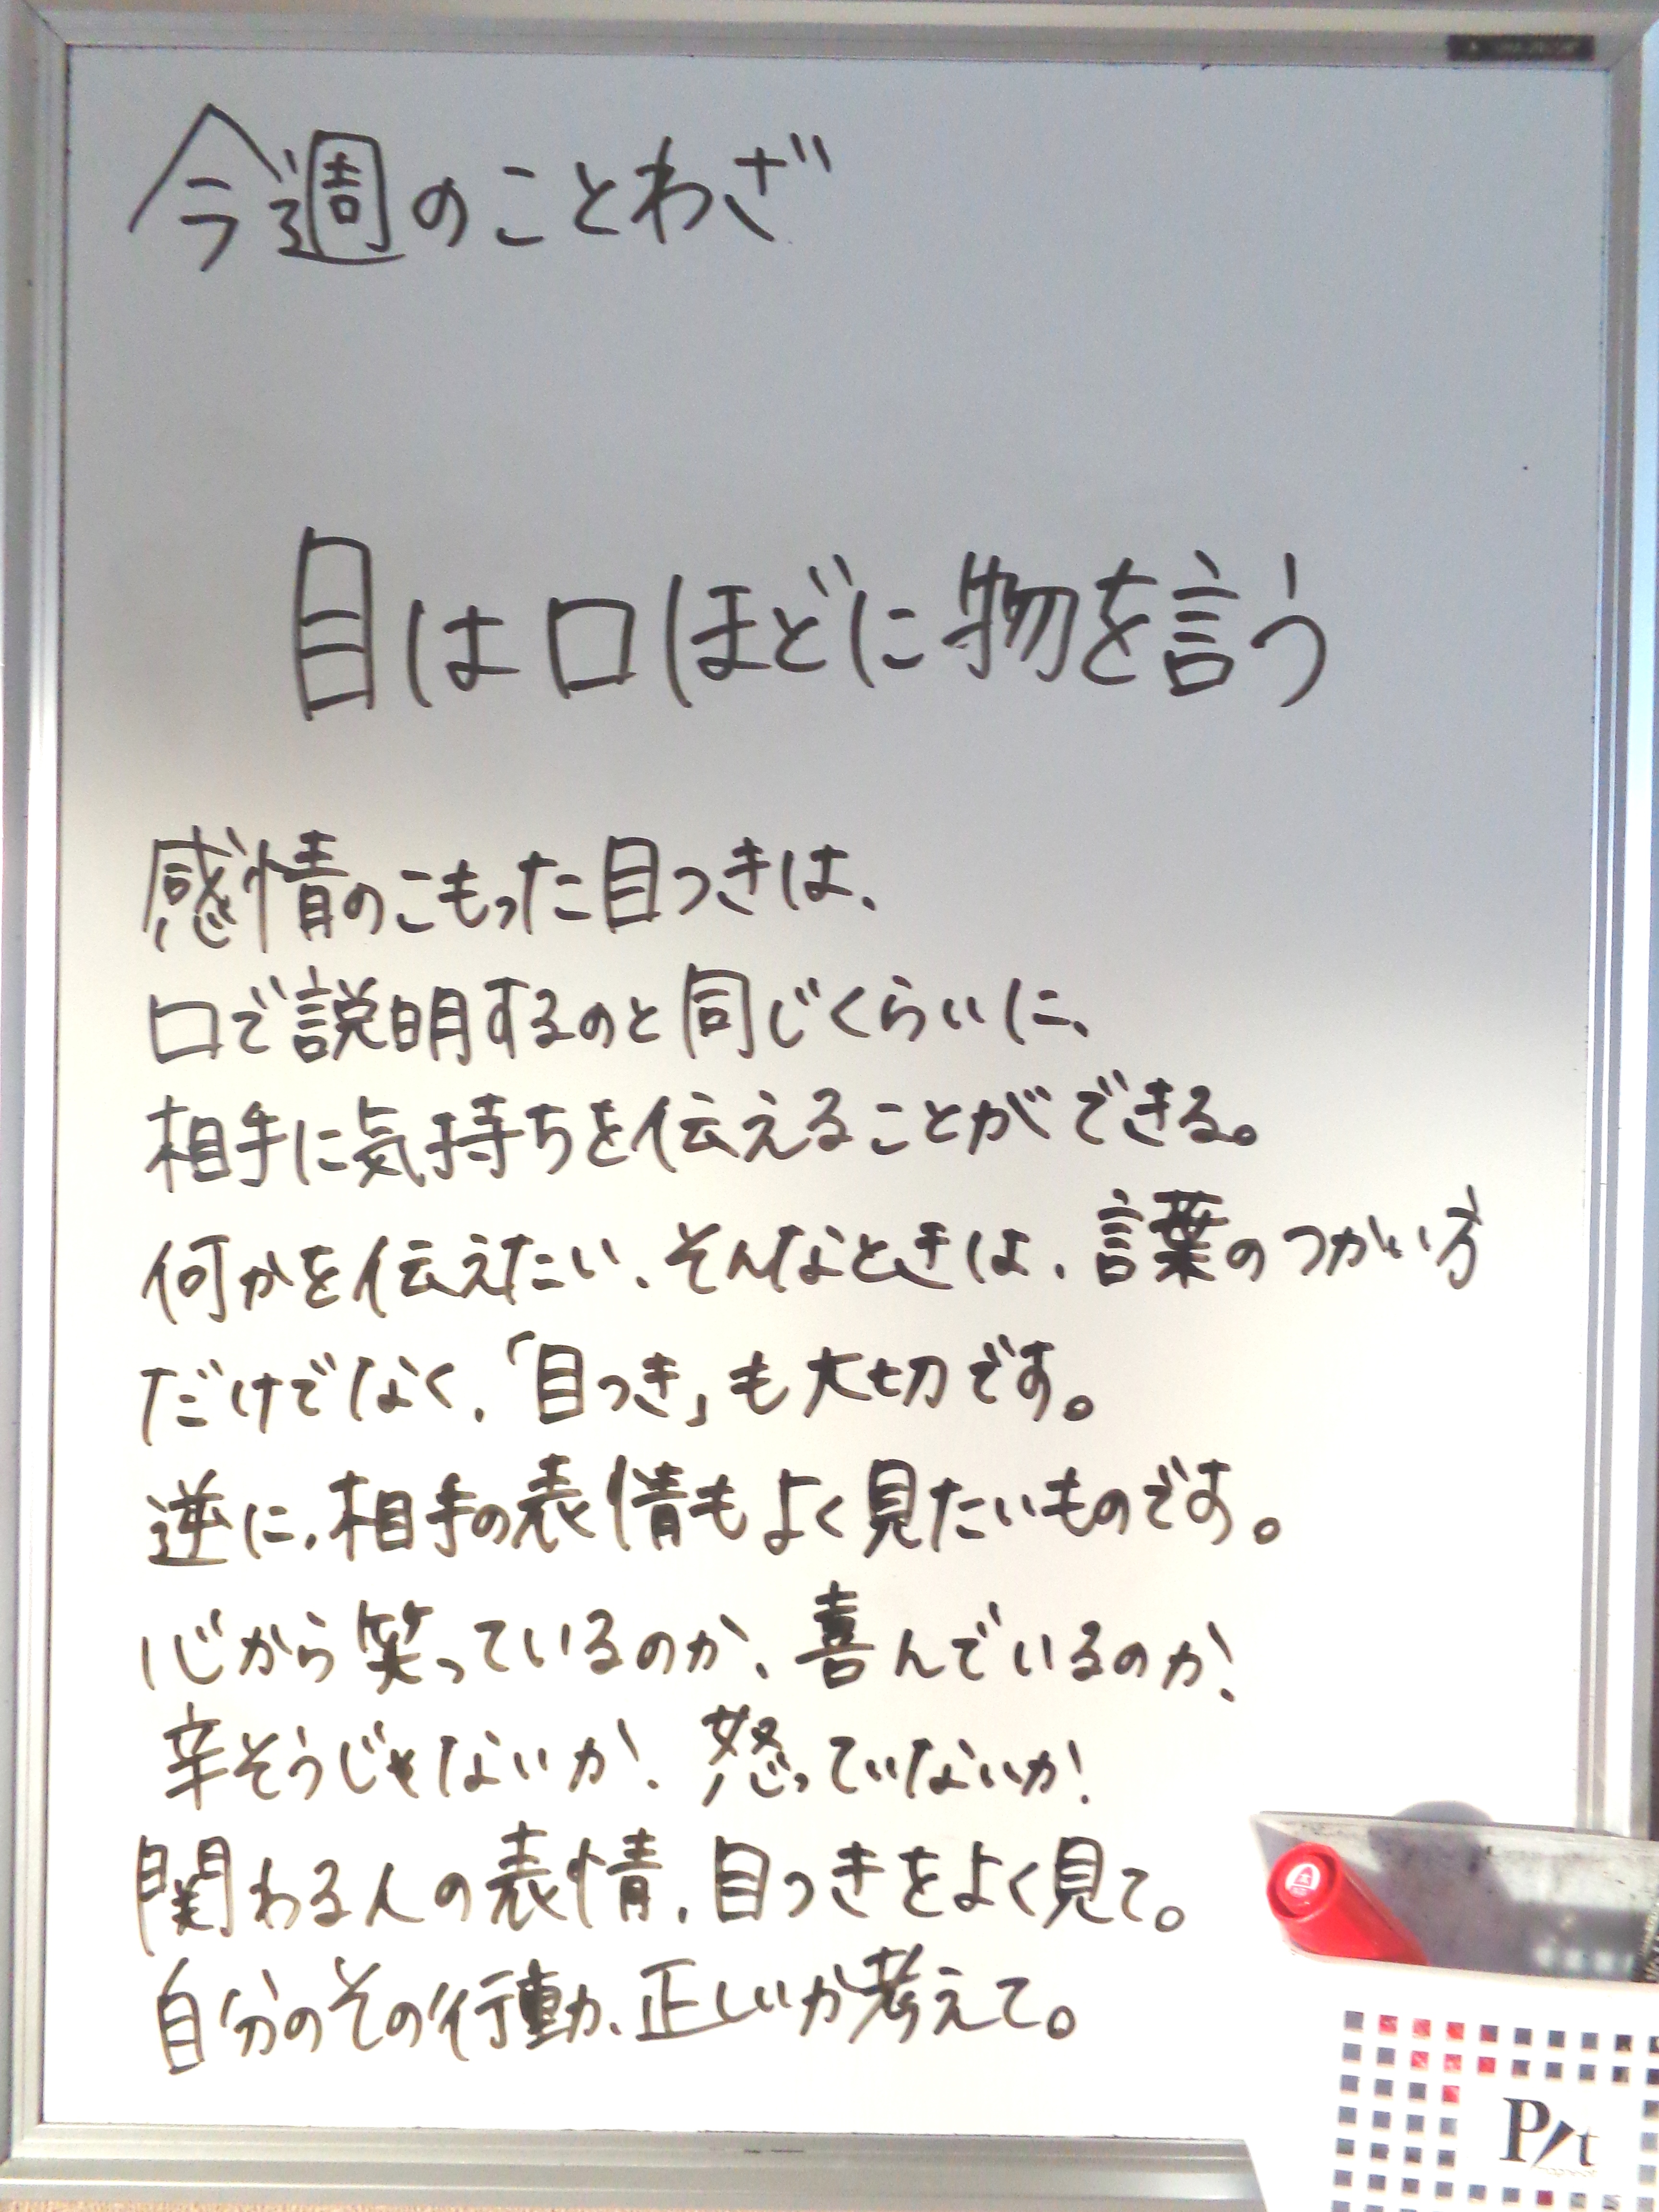 今週のことわざ
目は口ほどに物を言う
感情のこもった目つきは、
口で説明するのと同じくらいに、
相手に気持ちを伝えることができる。
何かを伝えたい、そんなときは、言葉のつかい方
だけでなく、「目つき」も大切です。
逆に、相手の表情もよく見たいものです。
心から笑っているのか、喜んでいるのか、
辛そうじゃないか、怒っていないか、
関わる人の表情、目つきをよく見て。
自分のその行動、正しいか考えて。
Pit